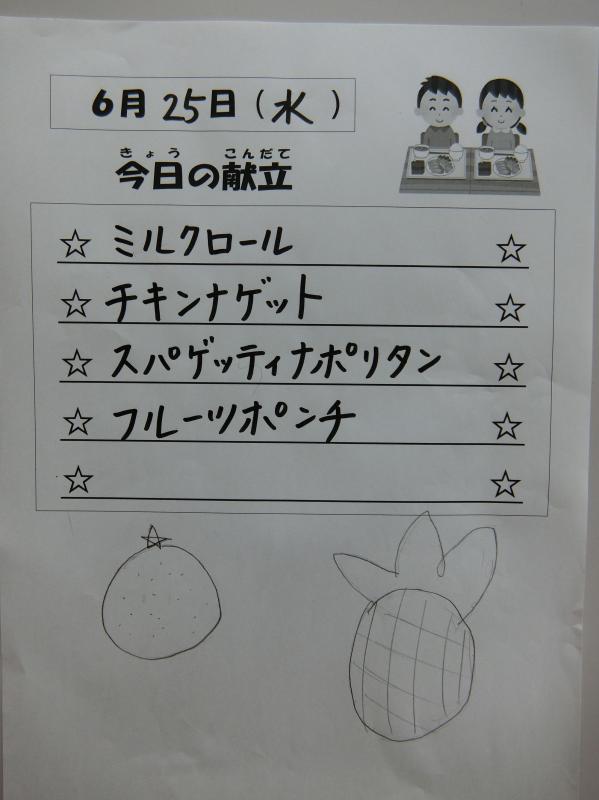 6月25日(水)
きょう こんだて
今日の献立
☆ ミルクロール ☆
☆ チキンナゲット ☆
☆ スパゲッティナポリタン ☆
☆ フルーツポンチ ☆
☆ ☆